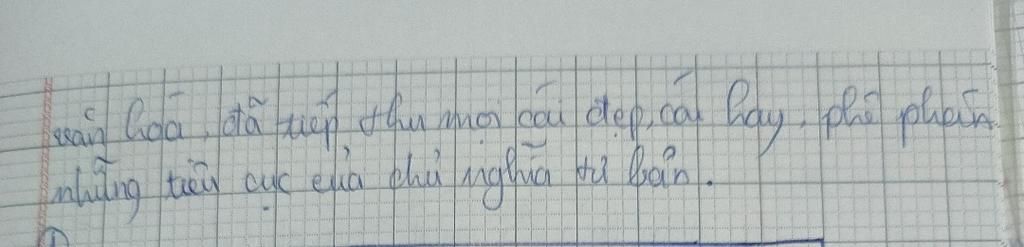 văn hoá, đã tiếp thu mọi cái đẹp, cái hay, phê phán
những tiêu cực của chủ nghĩa tư bản.